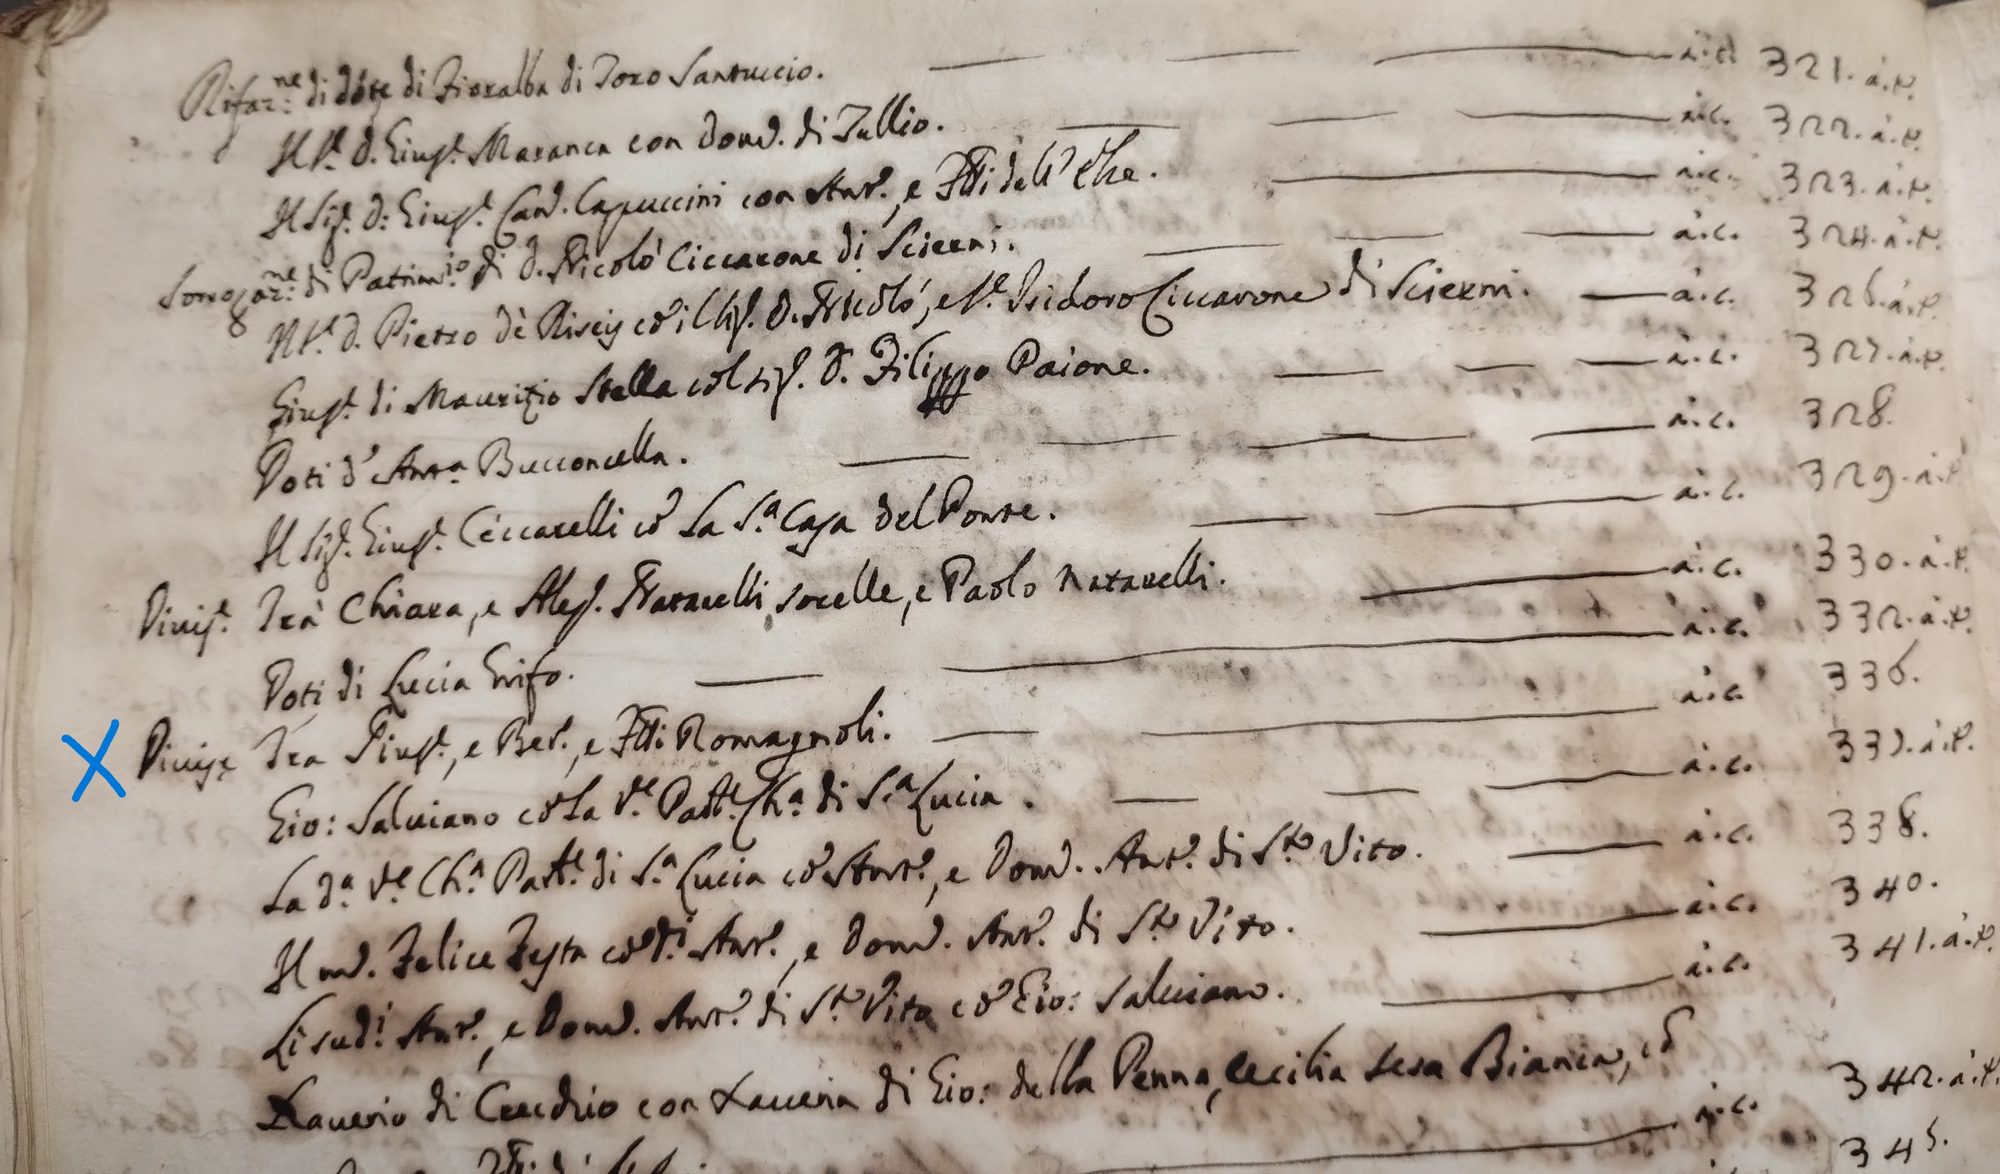 Rifaz.ne di dote di Fioralba di Toro Santuccio. a.c. 321. a.t.
Il S.r D. Gius.e Maranca con Dom.o di Tullio. a.c. 322. a.t.
Il Sig.r D: Gius.e Can.o Capuccini con Ant.o, e F̃lli dell' Elce. a.c. 323. a.t.
di Patrim.io di D. Nicolò Ciccarone di Scierni. a.c. 324. a.t.
Il S.r D. Pietro dè Riseis cõ il Sig. D. Nicolò, e S.r Isidoro Ciccarone di Scierni. a.c. 326. a.t.
Gius.e di Maurizio Stella col Sig.r D. Filippo Paione. a.c. 327. a.t.
Doti d' Ant.a Bucconcella. a.c. 328.
Il Sig.r Gius.e Ceccarelli cõ La S.a Casa del Ponte. a.c. 329. a.t.
Divis.e Trà Chiara, e Ales. Natarelli sorelle, e Paolo Natarelli. a.c. 330. a.t.
Doti di Lucia Grifo. a.c. 332. a.t.
X Divis.e Tra Gius.e, e Ber.o, e F̃lli Romagnoli. a.c. 336.
Gio: Salviano cõ La V.e Past.e Ch.a di S.a Lucia. a.c. 337. a.t.
La d.a V.e Ch.a Past.e di S.a Lucia cõ Ant.o, e Dom.o Ant.o di S.to Vito. a.c. 338.
Il m.o Felice Testa cõ d.i Ant.o, e Dom.o Ant.o di S.to Vito. a.c. 340.
Li sud.i Ant.o, e Dom.o Ant.o di S.to Vito cõ Gio: Salviano. a.c. 341. a.t.
Xaverio di Cecchio con Xaveria di Gio: della Penna, Cecilia Bianca, cõ
a.c. 342. a.t.
345.